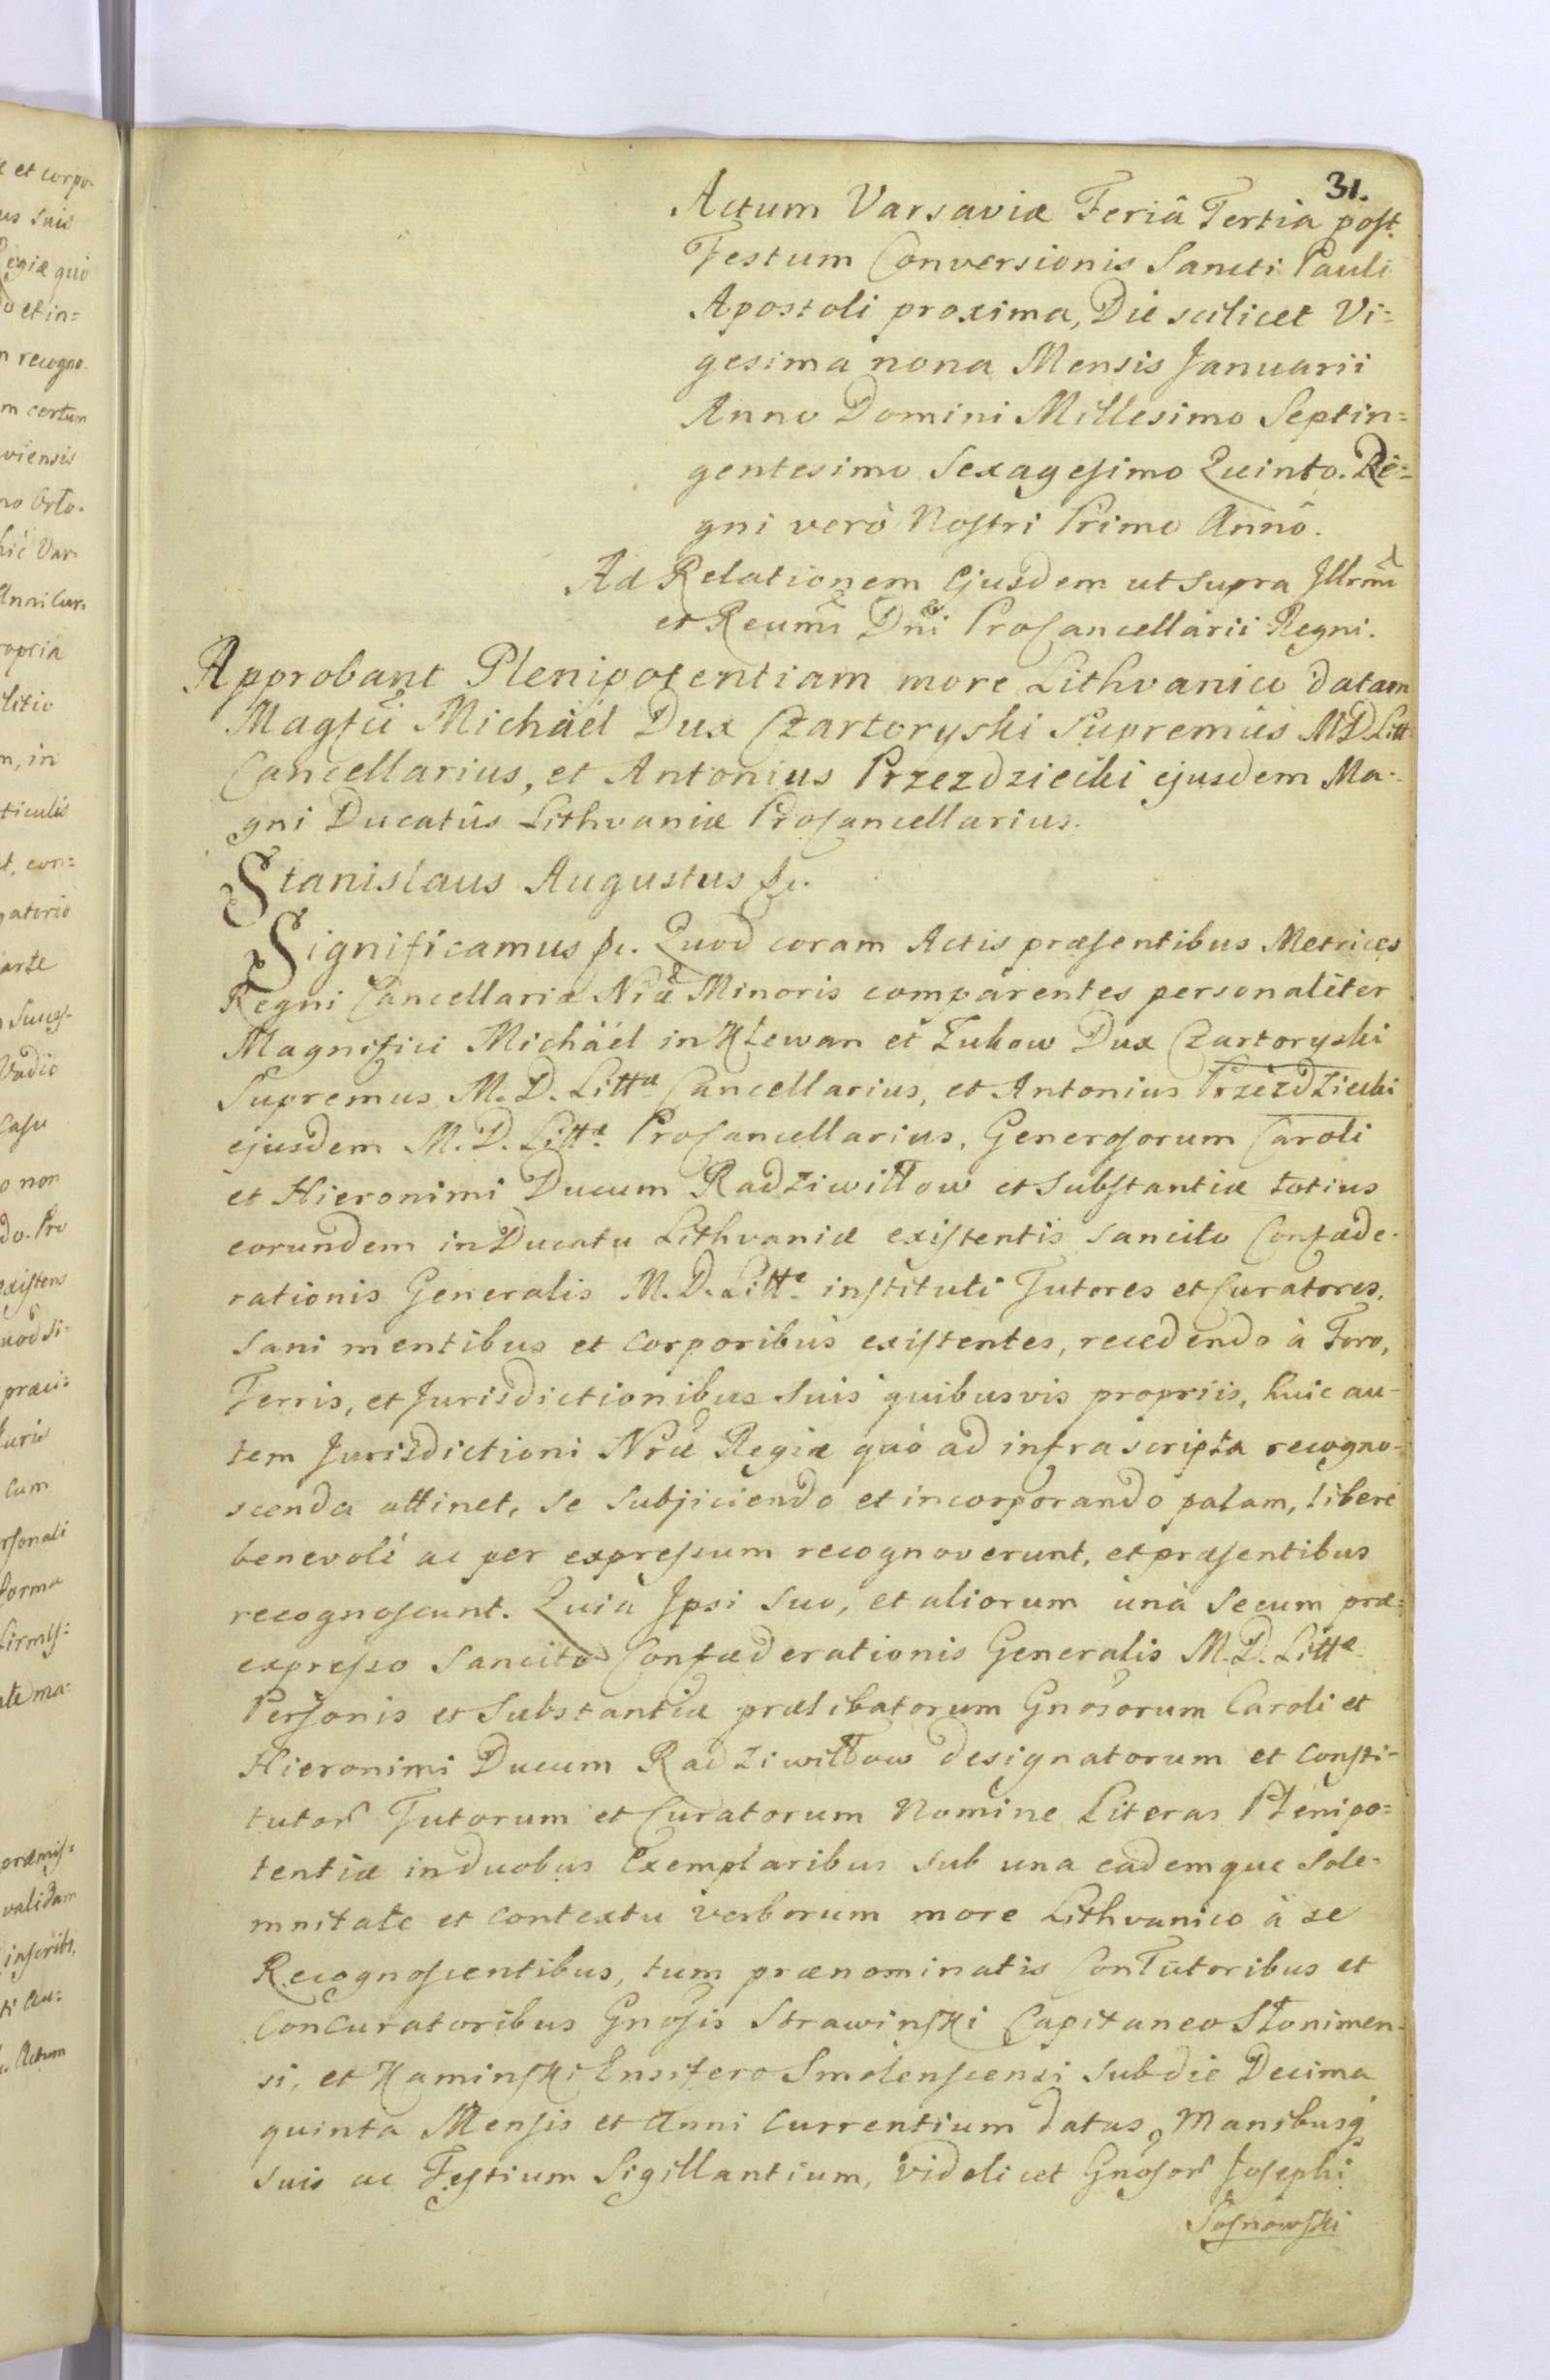 31.
Actum Varsaviæ Feriâ Tertia post
Festum Conversionis Sancti Pauli
Apostoli proxima, Die scilicet Vi=
gesima nona Mensis Januarii
Anno Domini Millesimo Septin=
gentesimo Sexagesimo Quinto. Re=
gni verò Nostri Primo Annô.
Ad Relationem Ejusdem ut supra Illrmi
et Reumi Dni ProCancellarii Regni.
Approbant Plenipotentiam more Lithvanico datam
Magfci Michàél Dux Czartoryski Supremus M.D.Litt
Cancellarius, et Antonius Przezdziecki ejusdem Ma-
gni Ducatûs Lithvaniæ ProCancellarius.
Stanislaus Augustus &c.
Significamus &c. Quod coram Actis præsentibus Metrices
Regni Cancellariæ Nræ Minoris comparentes personaliter
Magnifici Michàél in Klewan et Zukow Dux Czartoryski
Supremus M. D. Littæ Cancellarius, et Antonius Przezdziecki
ejusdem M. D. Littæ ProCancellarius, Generosorum Caroli
et Hieronimi Ducum Radziwiłłow et Substantiæ totius
eorundem in Ducatu Lithvaniæ existentis Sancito Confæde-
rationis Generalis M. D. Littæ instituti Tutores et Curatores,
Sani mentibus et Corporibus existentes, recedendo à Foro,
Terris, et Jurisdictionibus Suis quibusvis propriis, huic au-
tem Jurisdictioni Nræ Regiæ quò ad infrascripta recogno-
scenda attinet, se Subjiciendo et incorporando palam, liberè
benevolè ac per expressum recognoverunt, et præsentibus
recognoscunt. Quià Ipsi Suo, et aliorum unà Secum præ=
expresso Sancito Confæderationis Generalis M. D. Littæ
Personis et Substantiæ prælibatorum Gnosorum Caroli et
Hieronimi Ducum Radziwiłłow designatorum et Consti-
tutor Tutorum et Curatorum Nomine Literas Plenipo=
tentiæ in duobus Exemplaribus sub una eademque Sole-
mnitate et contextu verborum more Lithvanico à se
Recognoscentibus, tum prænominatis ConTutoribus et
ConCuratoribus Gnosis Strawinski Capitaneo Słonimen-
si, et Kaminski Ensifero Smolenscensi sub die Decima
quinta Mensis et Anni Currentium datas, Manibusq
suis ac Testium Sigillantium, videlicet Gnosor Josephi
Sosnowski
et corpo-
us suis
Regiæ quò
et in=
recogno
m certum
viensis
hic Var-
Anni Cur-
ropria
n, in
ticulis
t, con=
gatorio
arte
Succes-
Vadio
Casu
o non
do. Pro
existens
uod Si-
Juris
Cum
rsonali
forma
firmis=
præmis=
validam
inscribi,
ti Au=
Actum